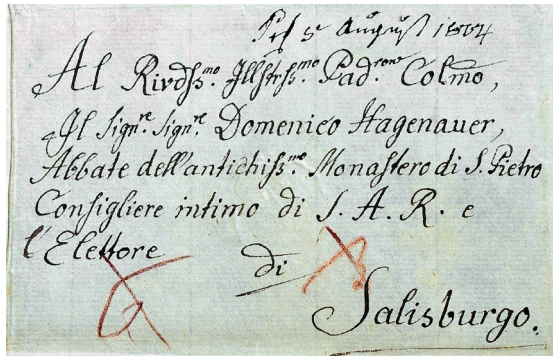 5 August 1804
Al Rivdss.mo Illstrss.mo Pad.rone Colmo,
Il Sign.re Sign.re Domenico Hagenauer,
Abbate dell'antichiss.mo Monastero di S. Pietro
Consigliere intimo di S. A. R. e
l'Elettore
di
Salisburgo.